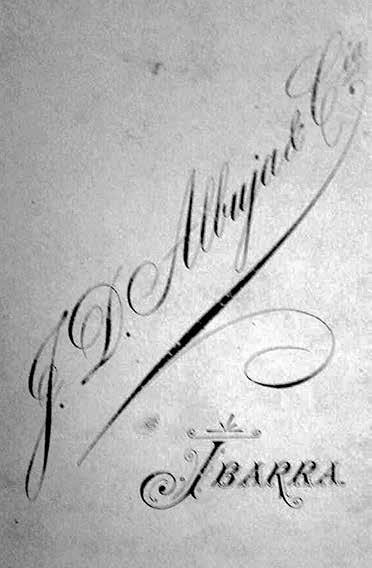 J. D. Albuja & Cia
IBARRA